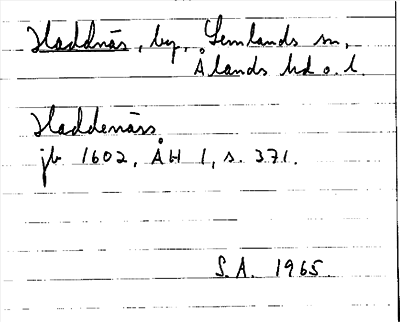 Haddnäs, by, Lemlands sn,
Ålands hd o. l.
Haddenäss
jb 1602, ÅH 1, s. 371.
S.A. 1965